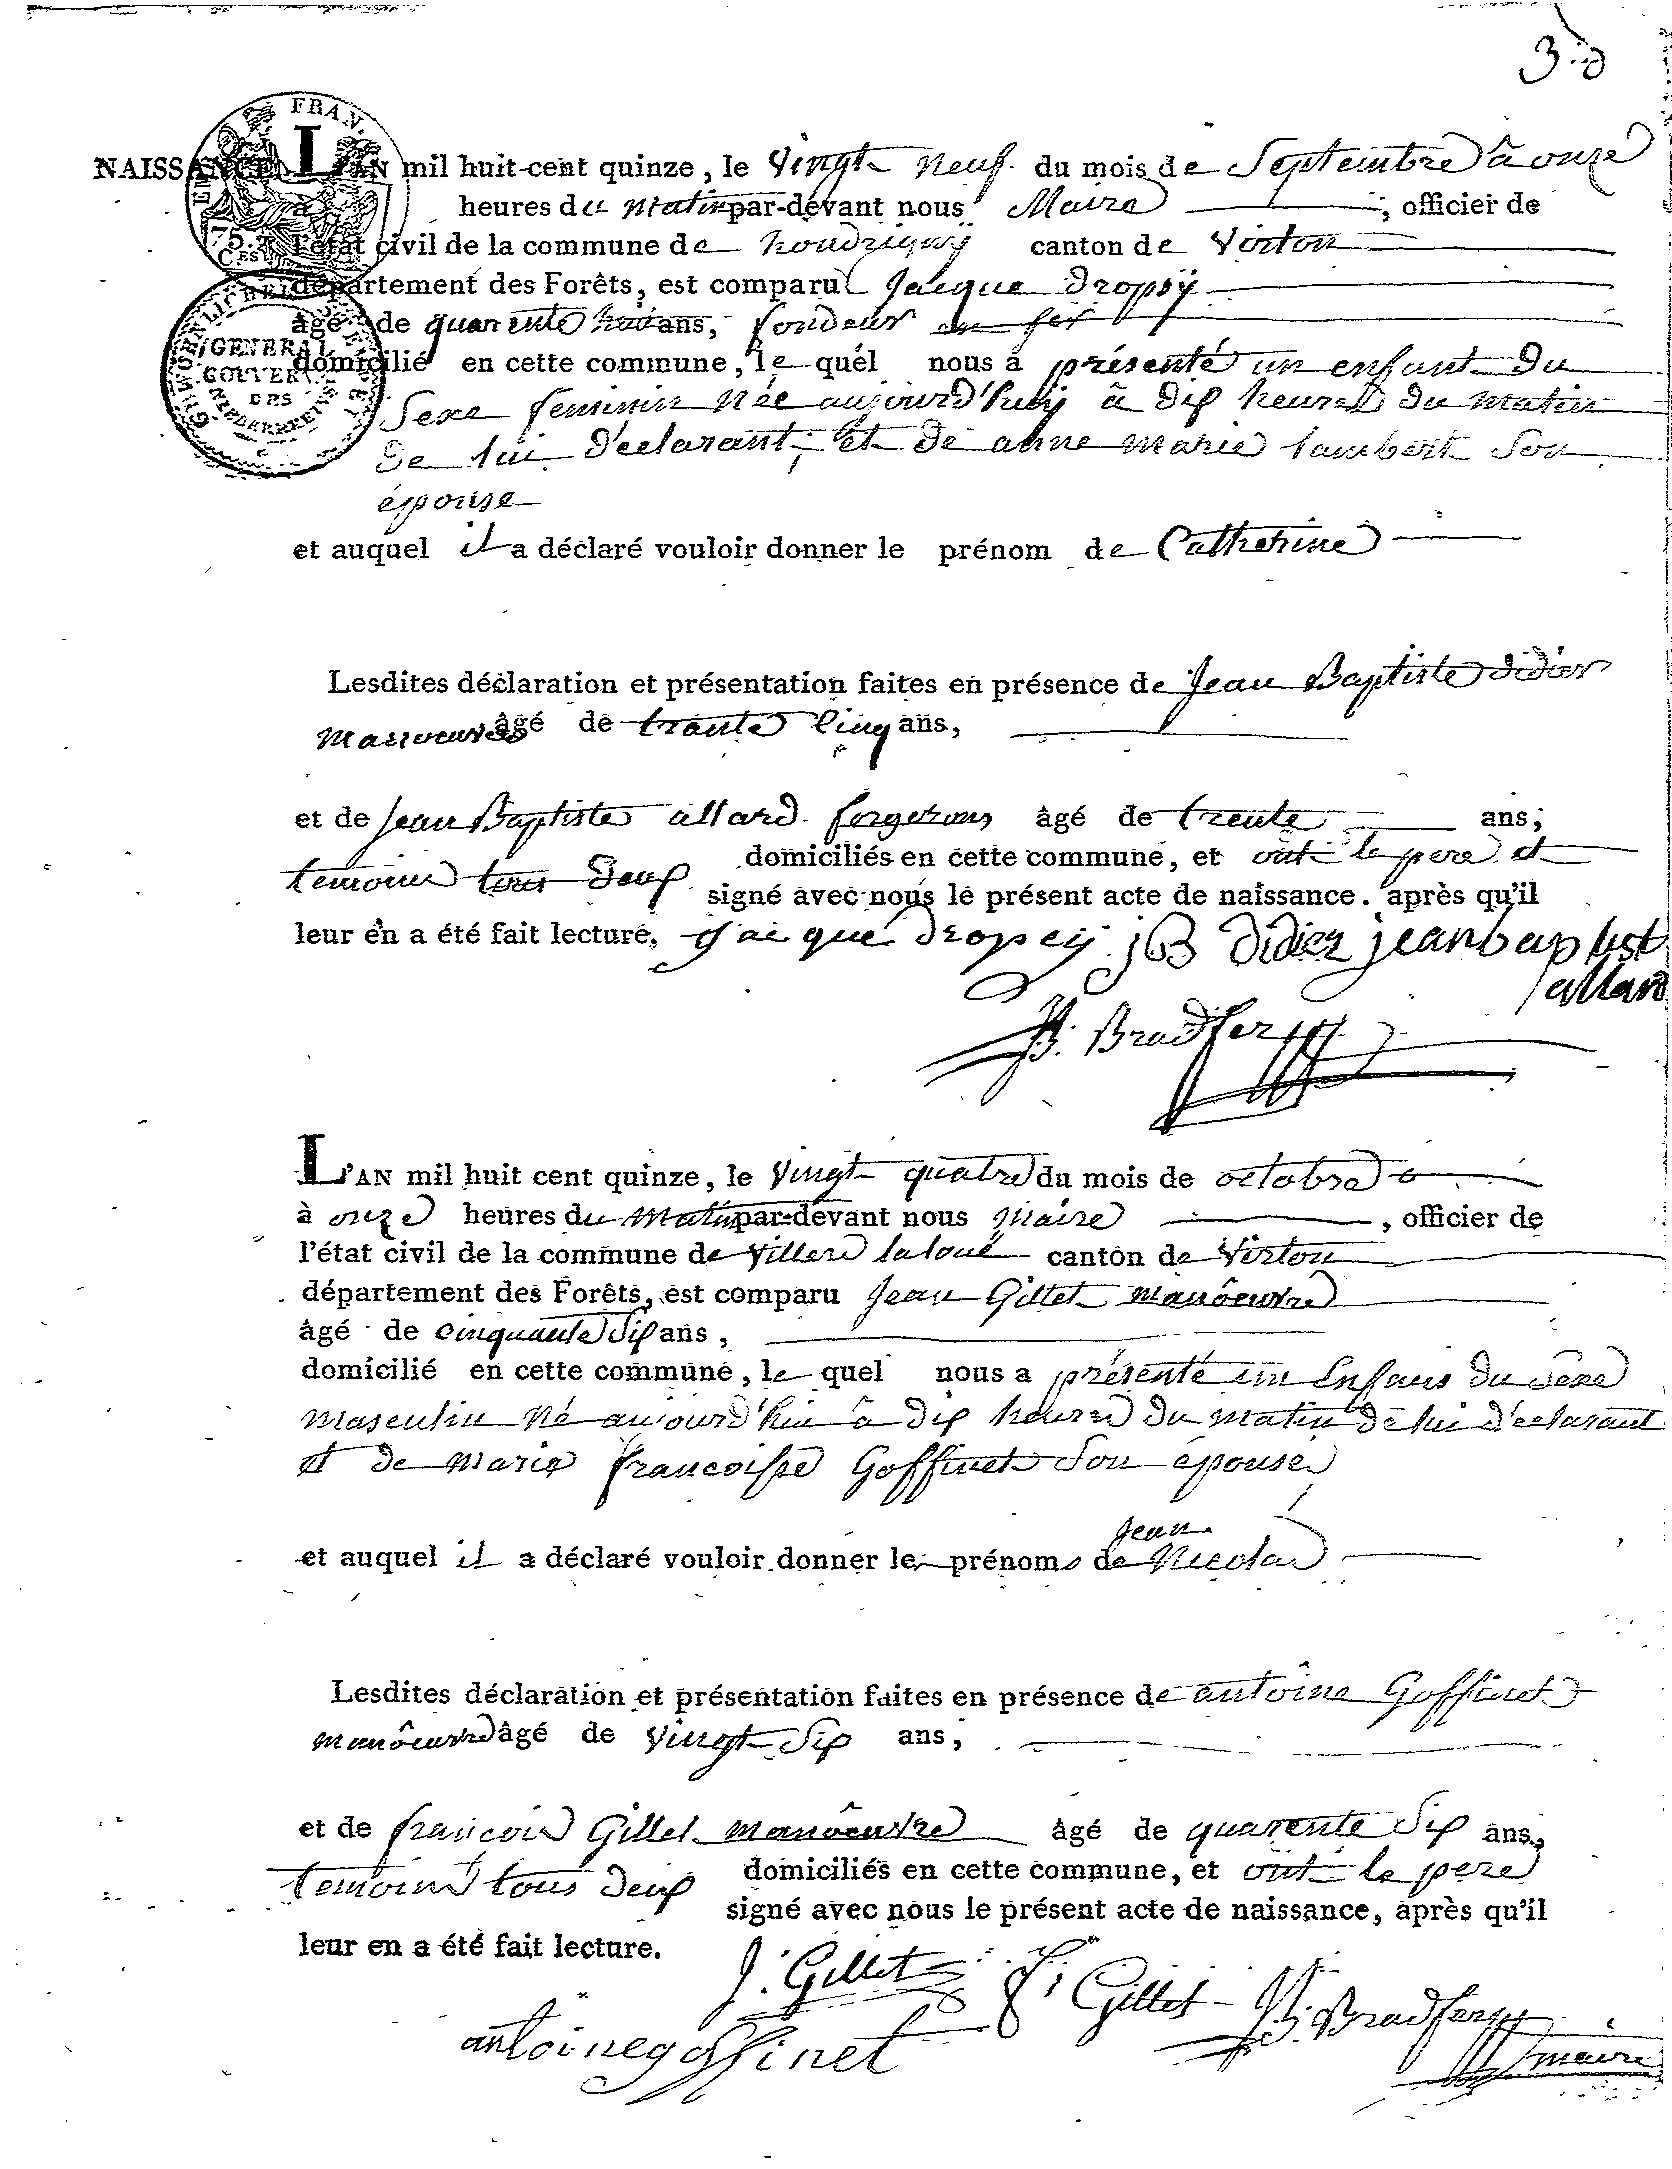 3.
FRAN.
NAISSANCE. L'AN mil huit-cent quinze, le Vingt neuf du mois de Septembre â onze
à heures du matin par-devant nous Maire , officier de
75. l'état civil de la commune de houdrigny canton de Virton
département des Forêts, est comparu Jacque Dropsÿ
âgé de quarente huit ans, fondeur en fer
domicilié en cette commune, le quel nous a présenté un enfant du
GENERAL
GOUVERN
DES
NIEDERRHEINS
Sexe feminin née aujourd'huÿ â dix heures du matin
de lui déclarant, et de anne marie lambert son
épouse
et auquel il a déclaré vouloir donner le prénom de Catherine
Lesdites déclaration et présentation faites en présence de Jean Baptiste didier
manoeuvre âgé de trante cinq ans,
et de Jean Baptiste allard forgerons âgé de trente ans;
temoins tous deux domiciliés en cette commune, et ont le pere et
signé avec nous le présent acte de naissance. après qu'il
leur en a été fait lecture. jacque dropsÿ jB Didier jean baptist
allard
JB. Bradfer
L'AN mil huit cent quinze, le vingt quatre du mois de octobre
à onze heures du Matin par-devant nous Maire , officier de
l'état civil de la commune de Villers laloue canton de Virton
département des Forêts, est comparu Jean Gillet manôeuvre
âgé de cinquante six ans,
domicilié en cette commune, le quel nous a présenté un Enfans du séxe
masculin né aujourd'hui â dix heures du matin de lui déclarant
et de marie francoisse Goffinet son épouse
Jean
et auquel il a déclaré vouloir donner les prénoms de Nicolas
Lesdites déclaration et présentation faites en présence de antoine Goffinet
manôeuvre âgé de vingt six ans,
et de françois Gillet manôeuvre âgé de quarente six ans,
temoins tous deux domiciliés en cette commune, et ont le pere
signé avec nous le présent acte de naissance, après qu'il
leur en a été fait lecture.
J. Gillet f. Gillet JB. Bradfer
antoine goffinet maire